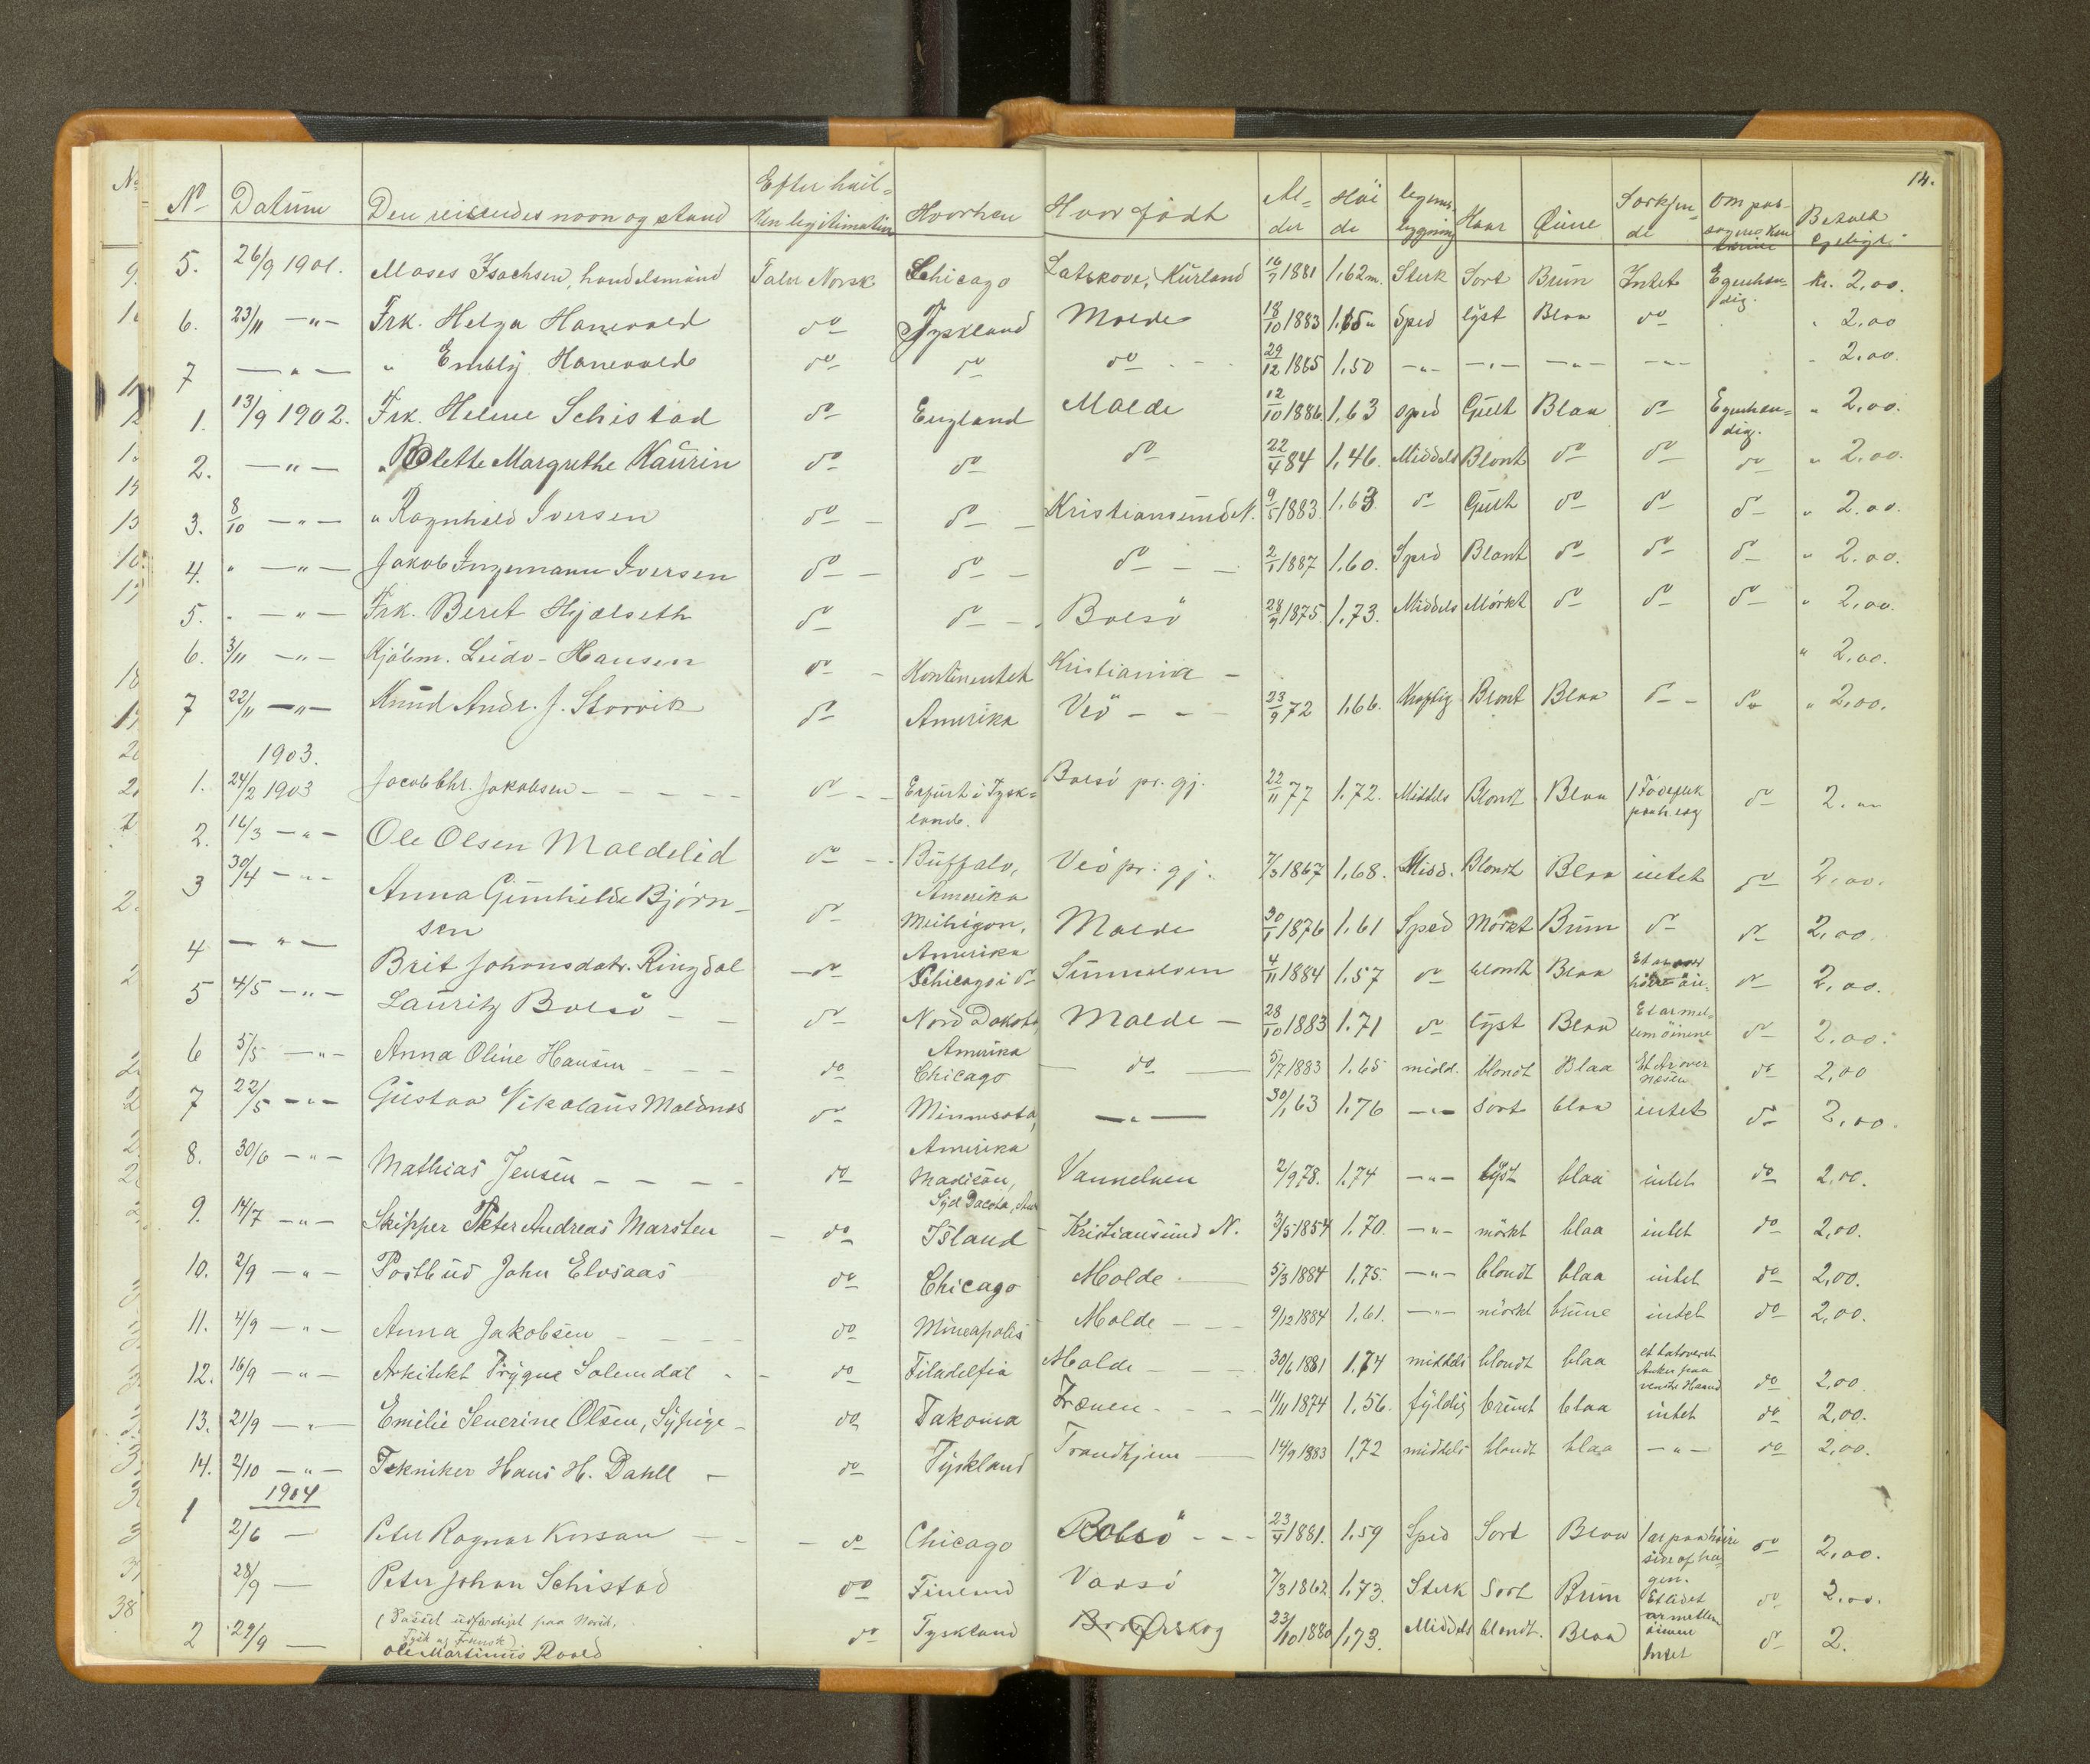 14.
No Datum Den reisendes navn og stand Efter hvil-ken legitimation Hvorhen Hvor født Al-der Höi-de legems-bygning Haar Öine Særkjen-de Om pas- Betalt
5. 26/9 1901. Moses Isachsen, handelsmand Taler Norsk Chicago Latskova, Kurland 16/7 1881 1,62 m. Sterk Sort Brun Intet Egenhæn-dig. Kr. 2,00.
6. 23/11 —"— Frk. Helga Hanevold do Tyskland Molde 18/10 1883 1,65 " Sped lyst Blaa do " 2,00
7 —"— " Embly Hanevold do do do 29/12 1885 1.50 —"— —"— —"— —"— - 2,00.
1. 13/9 1902. Frk. Helene Schistad do England Molde 12/10 1886. 1.63 sped Gult Blaa do Egenhæn-dig. " 2,00.
2. —"— " Bolette Margrethe Kaurin do do do 22/4 84 1,46. Middels Blont do do do " 2.00.
3. 8/10 —"— " Ragnhild Iversen do do Kristiansund N. 9/5 1883. 1.63. do Gult do do do " 2.00.
4. " —"— Jakob Ingemann Iversen do do do 2/1 1887 1.60. Sped Blont do do do " 2.00.
5. " —"— Frk. Beret Hjelseth do do Bolsö 28/9 1875. 1.73. Middels Mörkt do do do " 2,00.
6. 3/11 —"— Kjöbm. Ludv. Hansen do Kontinentet Kristiania " 2,00.
7 22/11 —"— Knud Andr. J. Storvik do Amerika Veö 23/9 72 1,66. Kraftig Blont Blaa do do " 2,00.
1903.
1. 24/2 1903 Jacob Chr. Jakobsen do Erfurt i Tysk-land. Bolsö pr. gj. 22/11 77 1.72. Middels Blondt Blaa 1 Födeflek do 2.
2. 16/3 —"— Ole Olsen Moldelid do Buffalo, Amerika Veö pr. gj. 7/3 1867 1,68. Midd. Blondt Blaa intet do 2,00.
3 30/4 —"— Anna Gunhilde Bjørn-sen do Michigan, Amerika Molde 30/1 1876 1,61 Sped Mörkt Brun do do 2,00.
4 —"— Brit Johansdatr. Ringdal do Chicago i do Sunnelven 4/11 1884 1.57 do blondt Blaa do 2,00.
5 4/5 —"— Lauritz Bolsö do Nord Dakota, Amerika Molde 28/10 1883 1.71 do lyst Blaa Et ar mel-lem öinene do 2,00.
6 5/5 —"— Anna Oline Hansen do Chicago do 5/7 1883 1.65 midd. blondt Blaa Et Ar over næsen do 2,00
7 22/5 —"— Gustav Nikolaus Moldnes do Minnesota, Amerika —"— 30/1 63 1.76 —"— Sort blaa intet do 2,00.
8. 30/6 —"— Mathias Jensen do Madison, Syd Dacota, Am. Vannelven 2/9 78. 1.74 —"— lyst blaa intet do 2,00.
9. 14/7 —"— Skipper Peter Andreas Marsten do Island Kristiansund N. 3/5 1854 1.70. —"— mörkt blaa intet do 2,00.
10. 2/9 —"— Postbud John Elvsaas do Chicago Molde 5/3 1884 1,75. —"— blondt blaa intet do 2,00.
11. 4/9 —"— Anna Jakobsen do Mineapolis Molde 9/12 1884 1.61. —"— mörkt brune intet do 2,00.
12. 16/9 —"— Arkitekt Trygve Solemdal do Filadelfia Molde 30/6 1881 1,74 middels blondt blaa et tatoveret Anker paa venstre Haand do 2,00
13. 21/9 —"— Emilie Severine Olsen, Sypige do Takoma Frænen 11/11 1874 1,56. fyldig brunt blaa intet do 2,00.
14. 2/10 —"— Tekniker Hans H. Dahll do Tyskland Trondhjem 14/9 1883 1,72 middels blondt blaa —"— do 2,00.
1904
1 2/6 — Peter Ragnar Korsan do Chicago Bolsö 23/4 1881. 1.59 Sped Sort Blaa 1 ar paa höire side af ha-gen. do 2,00.
28/9 — Peter Johan Schistad do Finland Vadsö 7/3 1862 1,73. Sterk Sort Brun Et lidet ar mellem öinene do 2,00.
(Passet udfærdiget paa Norsk, Tysk og Fransk)
2 29/9 — Ole Martinus Roald do Tyskland Ørskog 23/10 1880 1,73. Middels blondt. Blaa Intet do 2.